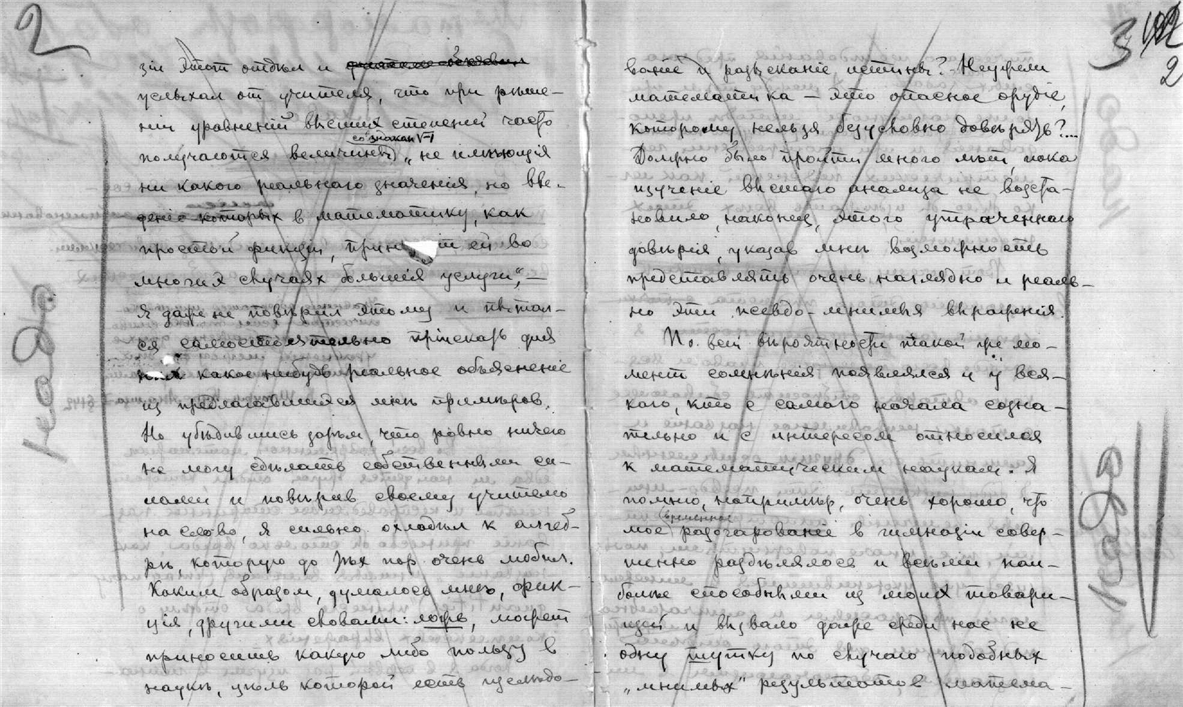 2
зіи этотъ отдѣлъ и
услыхал от учителя, что при рѣше-
ніи уравненій высших степеней часто
со знаком √-1
получаются величины, „не имѣющія
ни какого реальнаго значенія, но вве-
деніе которых в математику, как
простой фикціи, прин
многих случаях большія услуги“, —
я даже не повѣрил этому и пытал-
ся самостоятельно пріискать для
них какое нибудь реальное объясненіе
из представлявшихся мнѣ примѣров.
Но убѣдившись зарѣм, что ровно ничего
не могу сдѣлать собственными си-
лами и повѣрив своему учителю
на слово, я сильно охладѣл к алгеб-
рѣ, которую до тѣх пор очень любил.
Каким образом, думалось мнѣ, фик-
ція, другими словами: ложь, может
приносить какую либо пользу в
наукѣ, цѣль которой есть изслѣдо-
надо
3
2
ваніе и разысканіе истины? Неужели
математика — это опасное орудіе,
которому нельзя безусловно довѣрять?...
Должно было пройти много лѣт, пока
изученіе высшаго анализа не возста-
новило, наконец, этого утраченнаго
довѣрія, указав мнѣ возможность
представлять очень наглядно и реаль-
но эти псевдо-мнимыя выраженія.
По всей вѣроятности такой же мо-
мент сомнѣнія появлялся и у вся-
кого, кто с самого начала созна-
тельно и с интересом относился
к математическим наукам. Я
помню, например, очень хорошо, что
временное
мое разочарованіе в гимназіи совер-
шенно раздѣлялося и всѣми наи-
болѣе способными из моих товари-
щей и вызвало даже среди нас не
одну шутку по случаю подобных
„мнимых“ результатов матема-
надо